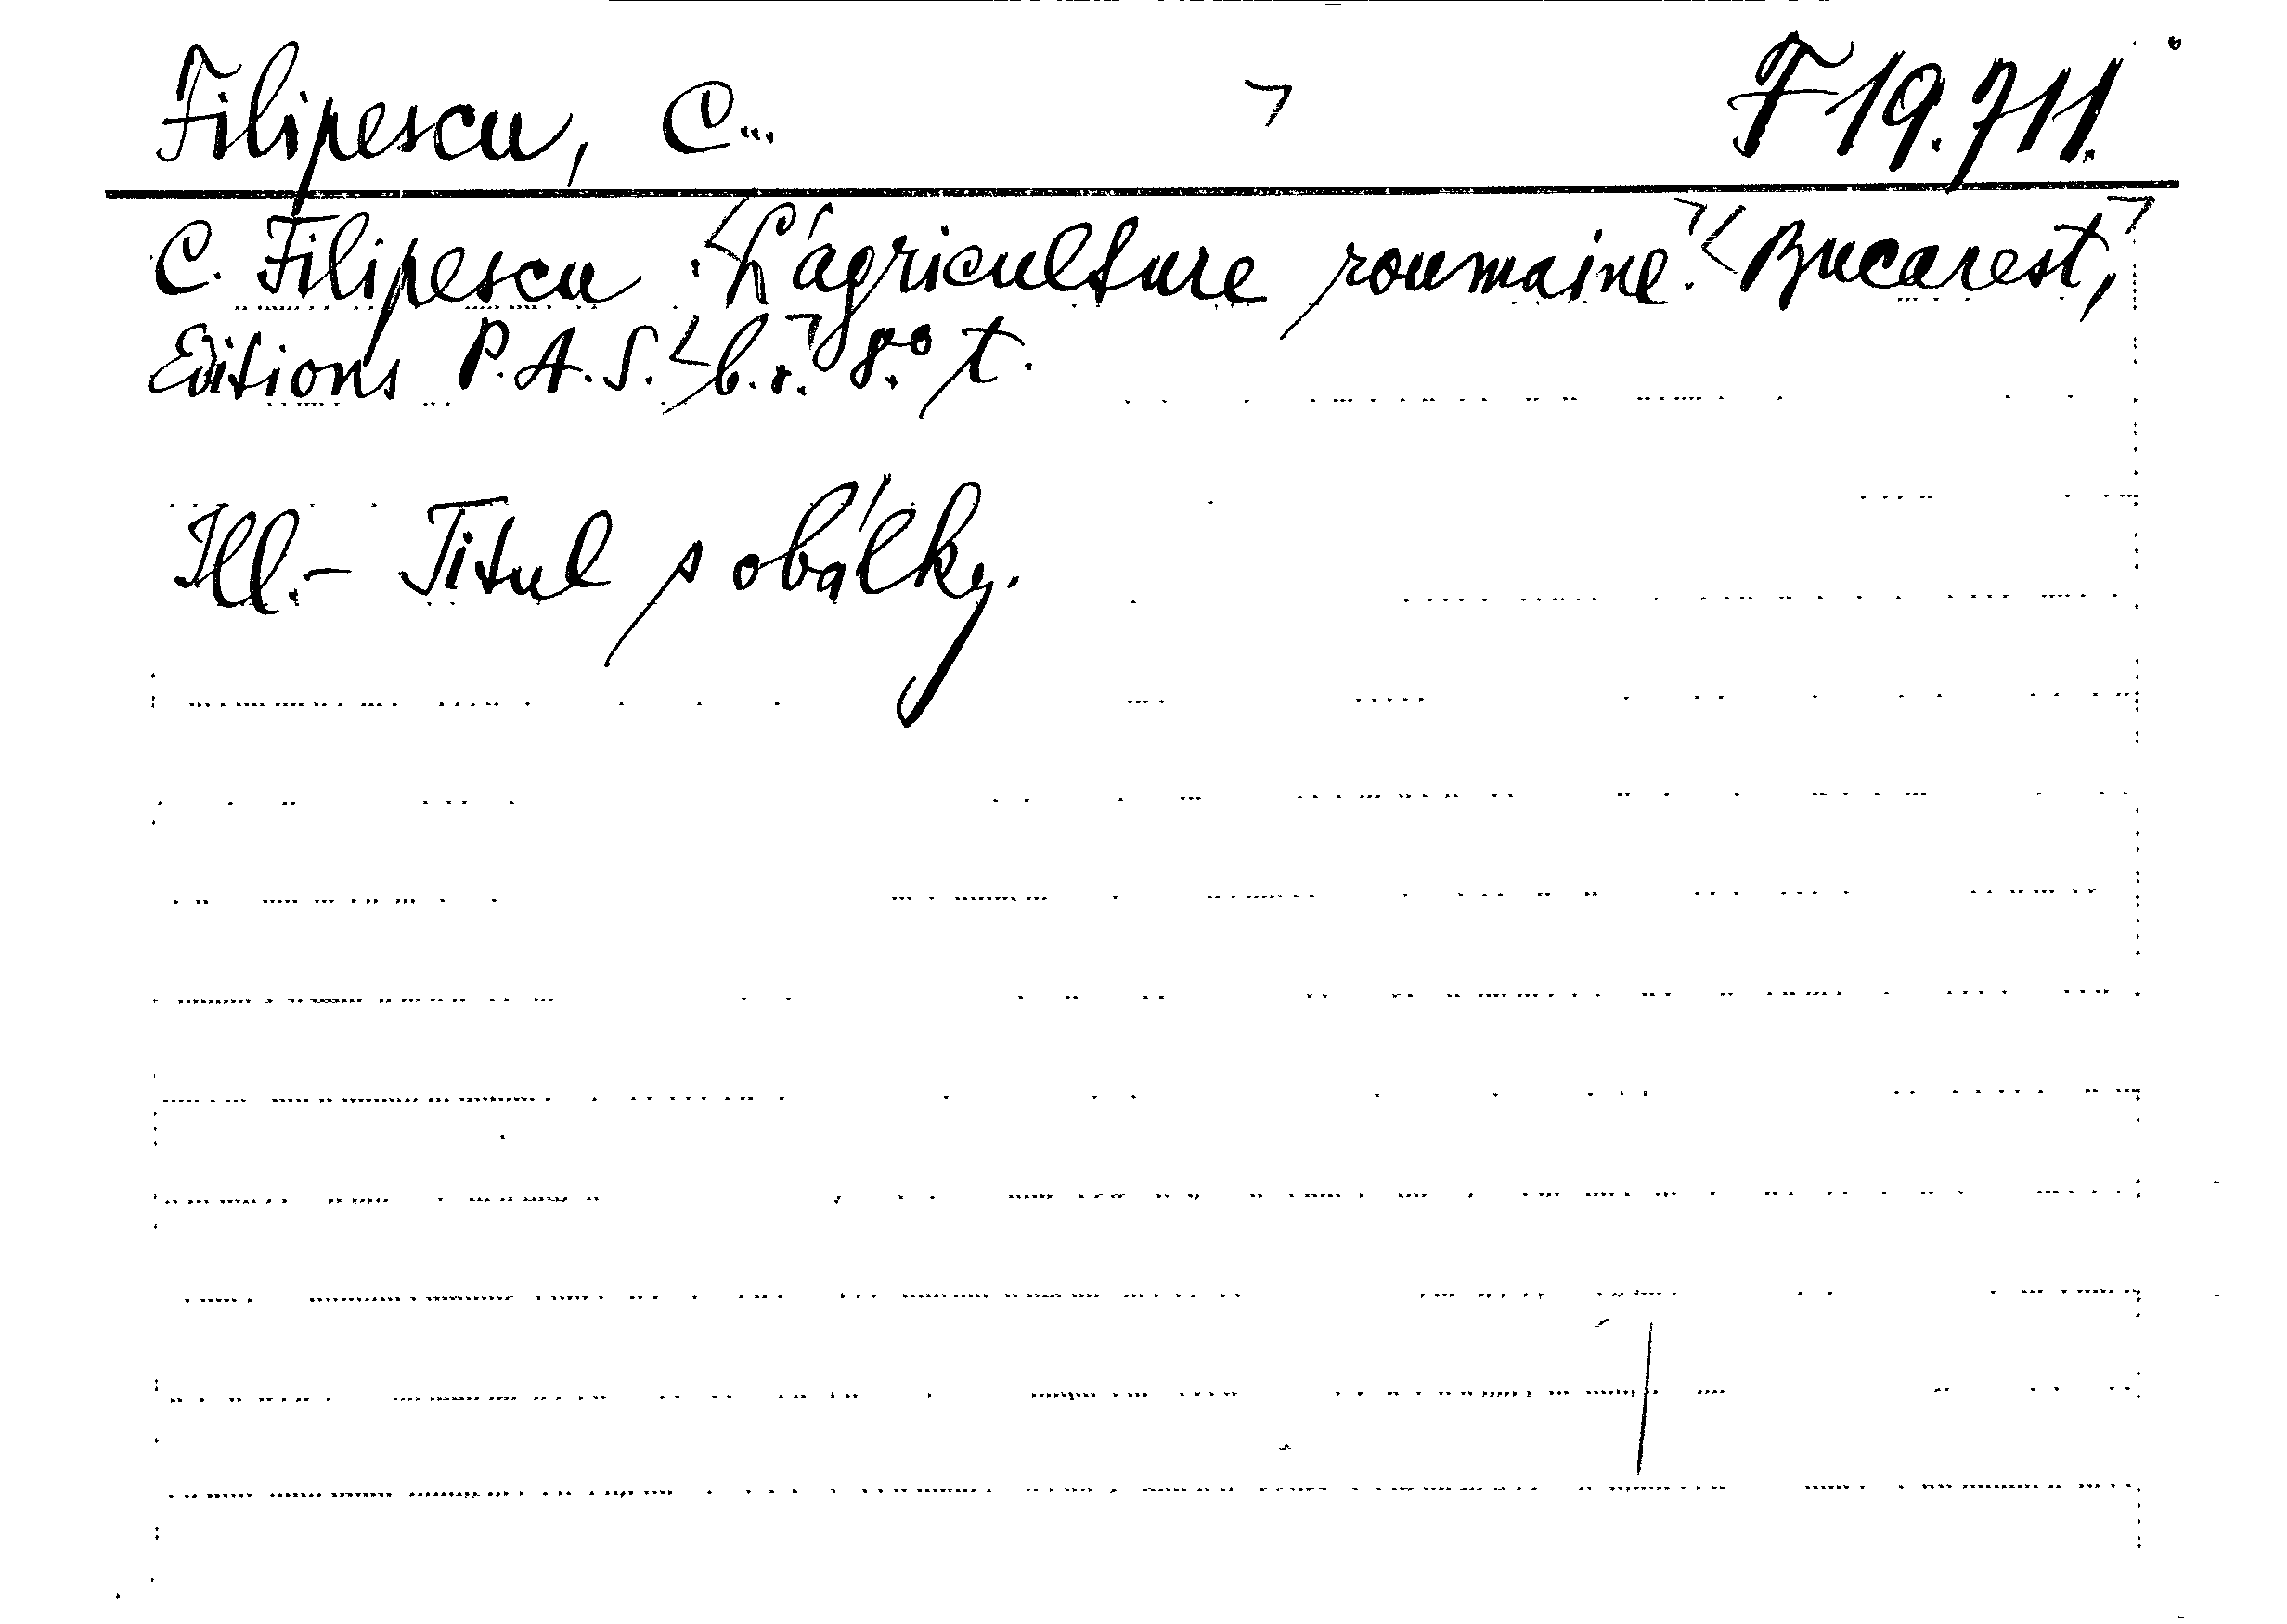 Filipescu, C... F 19.711.
C. Filipescu : L'agriculture roumaine. Bucarest,
Editions P.A.S. b.r. 8.° t.
Ill. - Titul s obálky.